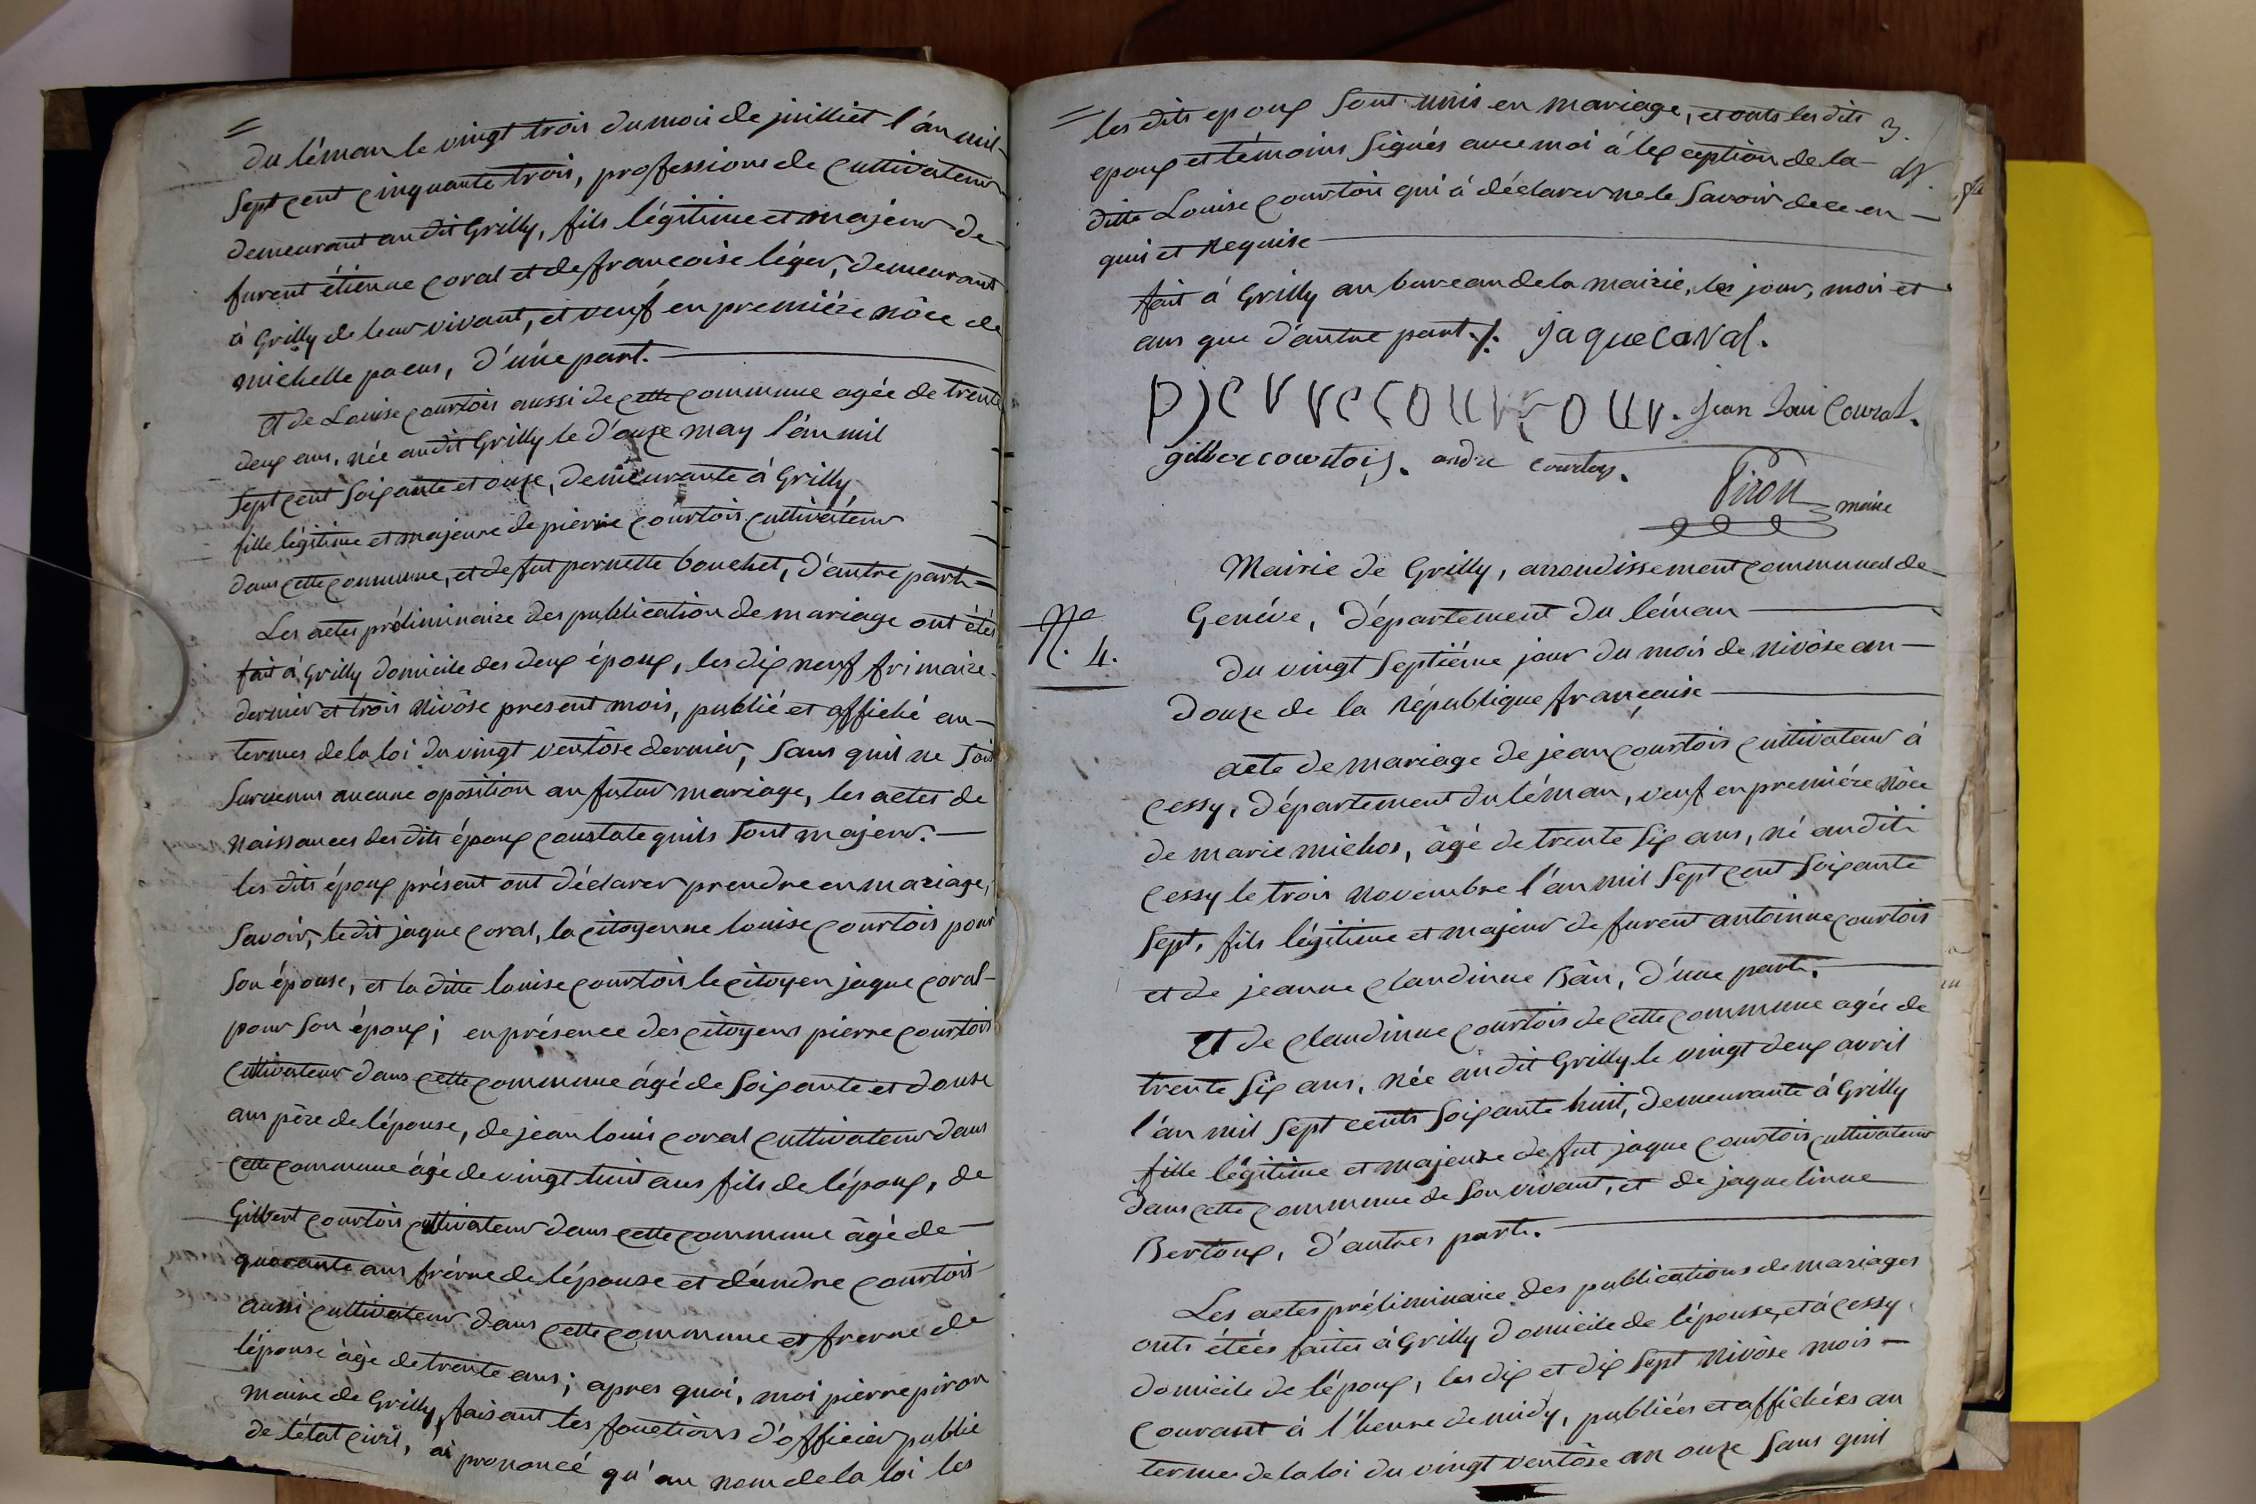 du léman le vingt trois du moii de juilliet l'án mil-
sept cent cinquante trois, professions de cultivateur
demeurant au dit Grilly, fils légitime et majeur de-
furent étienne coral et de françoise léger, demeurant
à Grilly de leur vivant, et veuf en premiére nôce de
michelle pacus, d'une part.
Et de Louise courtois aussi de cette commune agée de trente
deux ans, née au dit Grilly le d'ouze may l'án mil
sept cent soixante et onze, demeurante à Grilly
fille légitime et majeure de pierre courtois cultivateur
dans cette commune, et de fut pernette bouchet, d'autre part.
Les actes préliminaire des publication de mariage ont étés
fait à Grilly domicile des deux époux, les dix neuf frimaire
dernier et trois Nivôse present mois, publié et affiché en-
termes de la loi du vingt ventôse dernier, sans quil ne soit
survenus aucune oposition au futur mariage, les actes de
Naissances des dits époux constate quils sont majeur.
les dits époux présent ont déclarer prendre en mariage,
Savoir, le dit jaque coral, la citoyenne louise courtois pour
son épouse, et la ditte louise courtois le citoyen jaque coral-
pour son époux; en présence des citoyens pierre courtois
cultivateur dans cette commune ágé de soixante et douse
ans père de l'épouse, de jean louis coral cultivateur dans
cette commune ágé de vingt huit ans fils de l'époux, de
Gilbert courtois cultivateur dans cette commune âgé de
quarante ans frérre de lépouse et d'éandre courtois
aussi cultivateur dans cette commune et frerre de
l'épouse àgè de trente ans; apres quoi, moi pierre piron
maire de Grilly, faisant les fonctions d'officier public
de l'état civil, ai prononcé qu'au nom de la loi les
les dits epoux sont unis en mariage, et onts les dits 3.
epoux et témoins signés avec moi á lex ception de la
ditte Louise courtois qui à déclarer ne le savoir de ce en
quis et Requise
fait á Grilly au bureau de la mairie, les jour, mois et
ans que d'autre part. /. jaque caral.
pierre courtour. jean Loui Coural.
gilber courtois. andre courtoy.
Piron maire
Mairie de Grilly, arrondissement communal de
Genéve, Département du léman
N.o 4.
du vingt septiéme jour du mois de nivôse an
douze de la République française
acte de mariage de jean courtois cultivateur à
cessy, département du léman, veuf en premiére nôce
de marie michos, âgé de trente six ans, né au dit
cessy le trois novembre l'an mil sept cent soixante
sept, fils légitime et majeur de furent antoinne courtois
et de jeanne claudinne Bân, d'une part.
Et de claudinne courtois de cette commune agée de
trente six ans, née au dit Grilly le vingt deux avril
l'án mil sept cents soixante huit, demeurante à Grilly
fille légitime et majeure de fut jaque courtois cultivateur
dans cette commune de son vivant, et de jaquelinne
Bertoux, d'autres part.
Les actes préliminaire des publications de mariages
onts étéés faites à Grilly domicile de l'épouse, et à cessy
domicile de l'époux, les dix et dix sept Nivôse mois
courant à l'heure de midy, publiées et affichées au
termes de la loi du vingt ventôse an onze sans quil